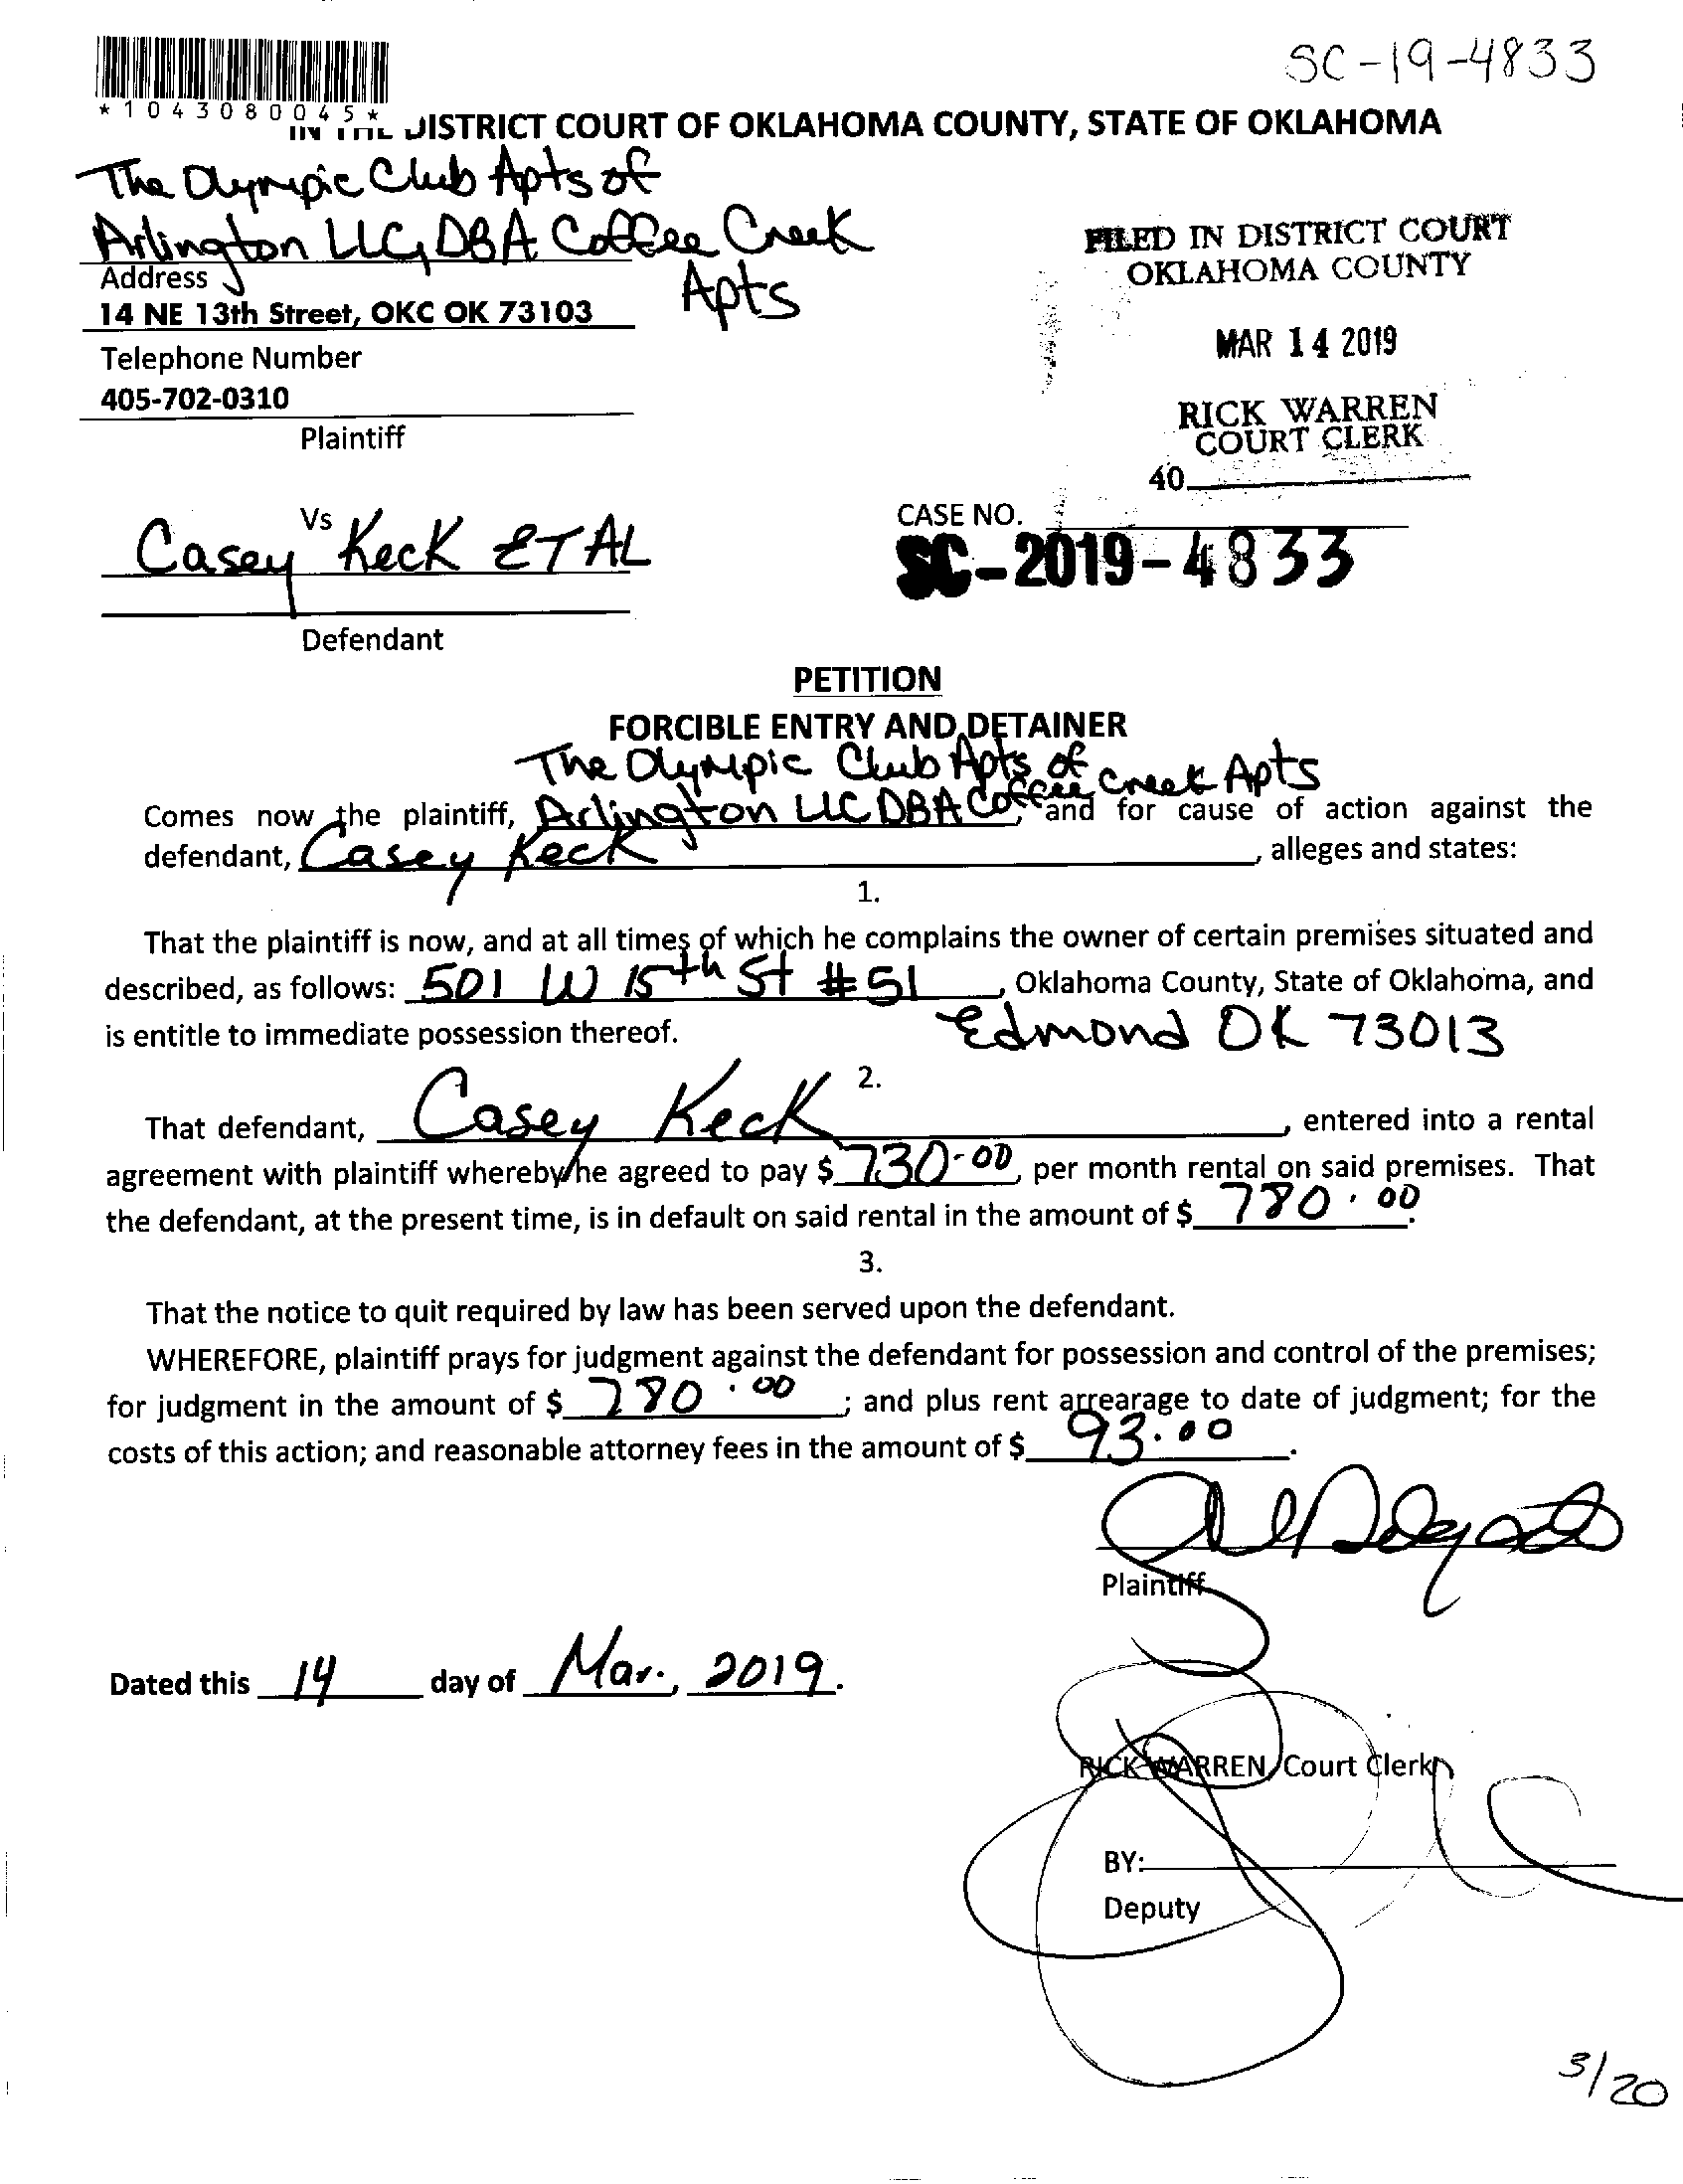 SC-19-4833
*1043080045*
IN THE DISTRICT COURT OF OKLAHOMA COUNTY, STATE OF OKLAHOMA
The Olympic Club Apts of
Arlington LLC, DBA Coffee Creek
Apts
Address
14 NE 13th Street, OKC OK 73103
Telephone Number
405-702-0310
Plaintiff
FILED IN DISTRICT COURT
OKLAHOMA COUNTY
MAR 14 2019
RICK WARREN
COURT CLERK
40
Vs
Casey Keck ET AL
Defendant
CASE NO.
SC-2019-4833
PETITION
FORCIBLE ENTRY AND DETAINER
The Olympic Club Apts of
Comes now the plaintiff, Arlington LLC DBA Coffee Creek Apts, and for cause of action against the
defendant, Casey Keck, alleges and states:
1.
That the plaintiff is now, and at all times of which he complains the owner of certain premises situated and
described, as follows: 501 W 15th St #51, Oklahoma County, State of Oklahoma, and
is entitle to immediate possession thereof. Edmond OK 73013
2.
That defendant, Casey Keck, entered into a rental
agreement with plaintiff whereby he agreed to pay $ 730.00, per month rental on said premises. That
the defendant, at the present time, is in default on said rental in the amount of $ 780.00.
3.
That the notice to quit required by law has been served upon the defendant.
WHEREFORE, plaintiff prays for judgment against the defendant for possession and control of the premises;
for judgment in the amount of $ 780.00; and plus rent arrearage to date of judgment; for the
costs of this action; and reasonable attorney fees in the amount of $ 93.00.
Plaintiff
Dated this 14 day of Mar., 2019.
RICK WARREN, Court Clerk
BY:
Deputy
3/20